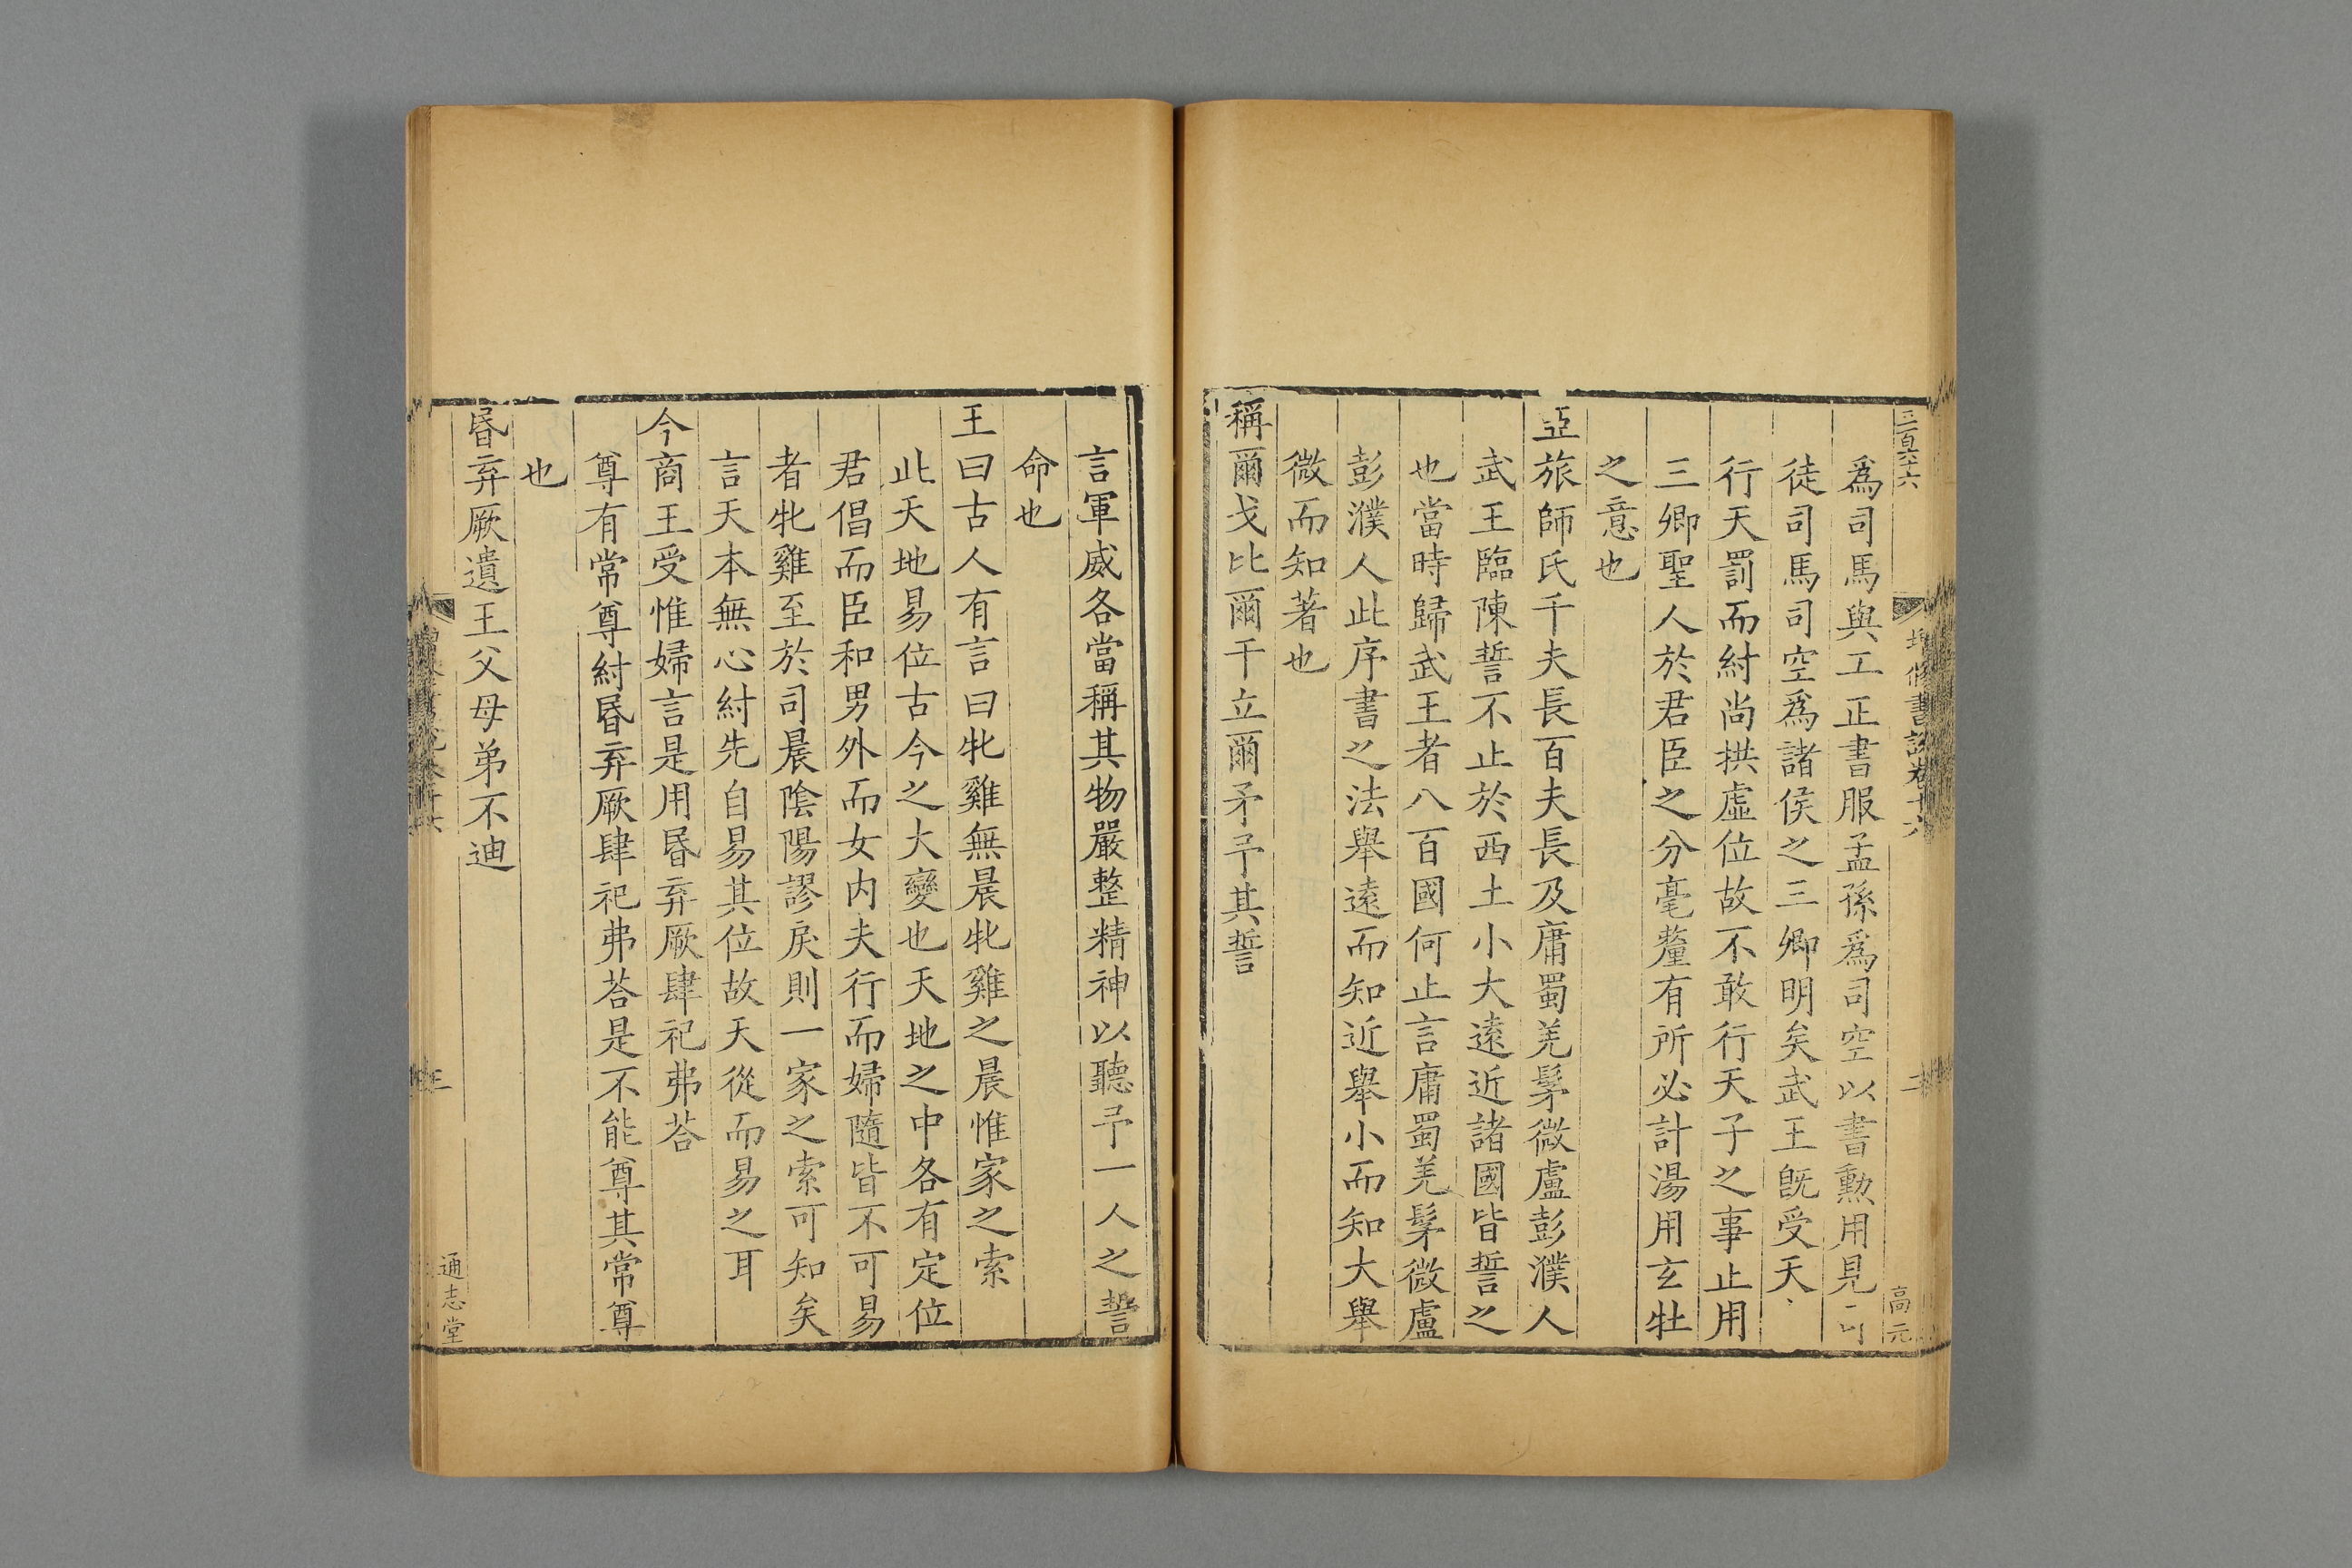 三百六十六
增修書說卷十六
二
高元
爲司馬與工正書服孟孫爲司空以書勲用見
徒司馬司空爲諸侯之三卿明矣武王旣受天
行天罰而紂尚拱虛位故不敢行天子之事止用
三卿聖人於君臣之分毫釐有所必計湯用玄牡
之意也
亞旅師氏千夫長百夫長及庸蜀羌髳微盧彭濮人
武王臨陳誓不止於西土小大遠近諸國皆誓之
也當時歸武王者八百國何止言庸蜀羌髳微盧
彭濮人此序書之法舉遠而知近舉小而知大舉
微而知著也
稱爾戈比爾干立爾矛予其誓
言軍威各當稱其物嚴整精神以聽予一人之誓
命也
王曰古人有言曰牝雞無晨牝雞之晨惟家之索
此天地易位古今之大變也天地之中各有定位
君倡而臣和男外而女内夫行而婦隨皆不可易
者牝雞至於司晨陰陽謬戾則一家之索可知矣
言天本無心紂先自易其位故天從而易之耳
今商王受惟婦言是用昬弃厥肆祀弗荅
尊有常尊紂昬弃厥肆祀弗荅是不能尊其常尊
也
昬弃厥遺王父母弟不迪
三
通志堂